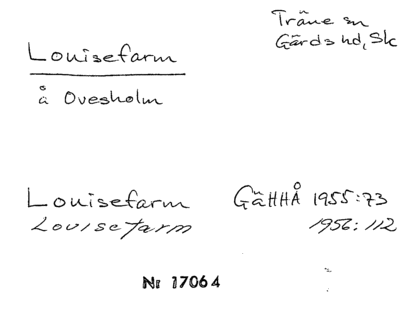 Träne sn
Gärds hd, Sk
Louisefarm
å Ovesholm
Louisefarm GäHHÅ 1955:73
Louisefarm 1956:112
Nr 17064